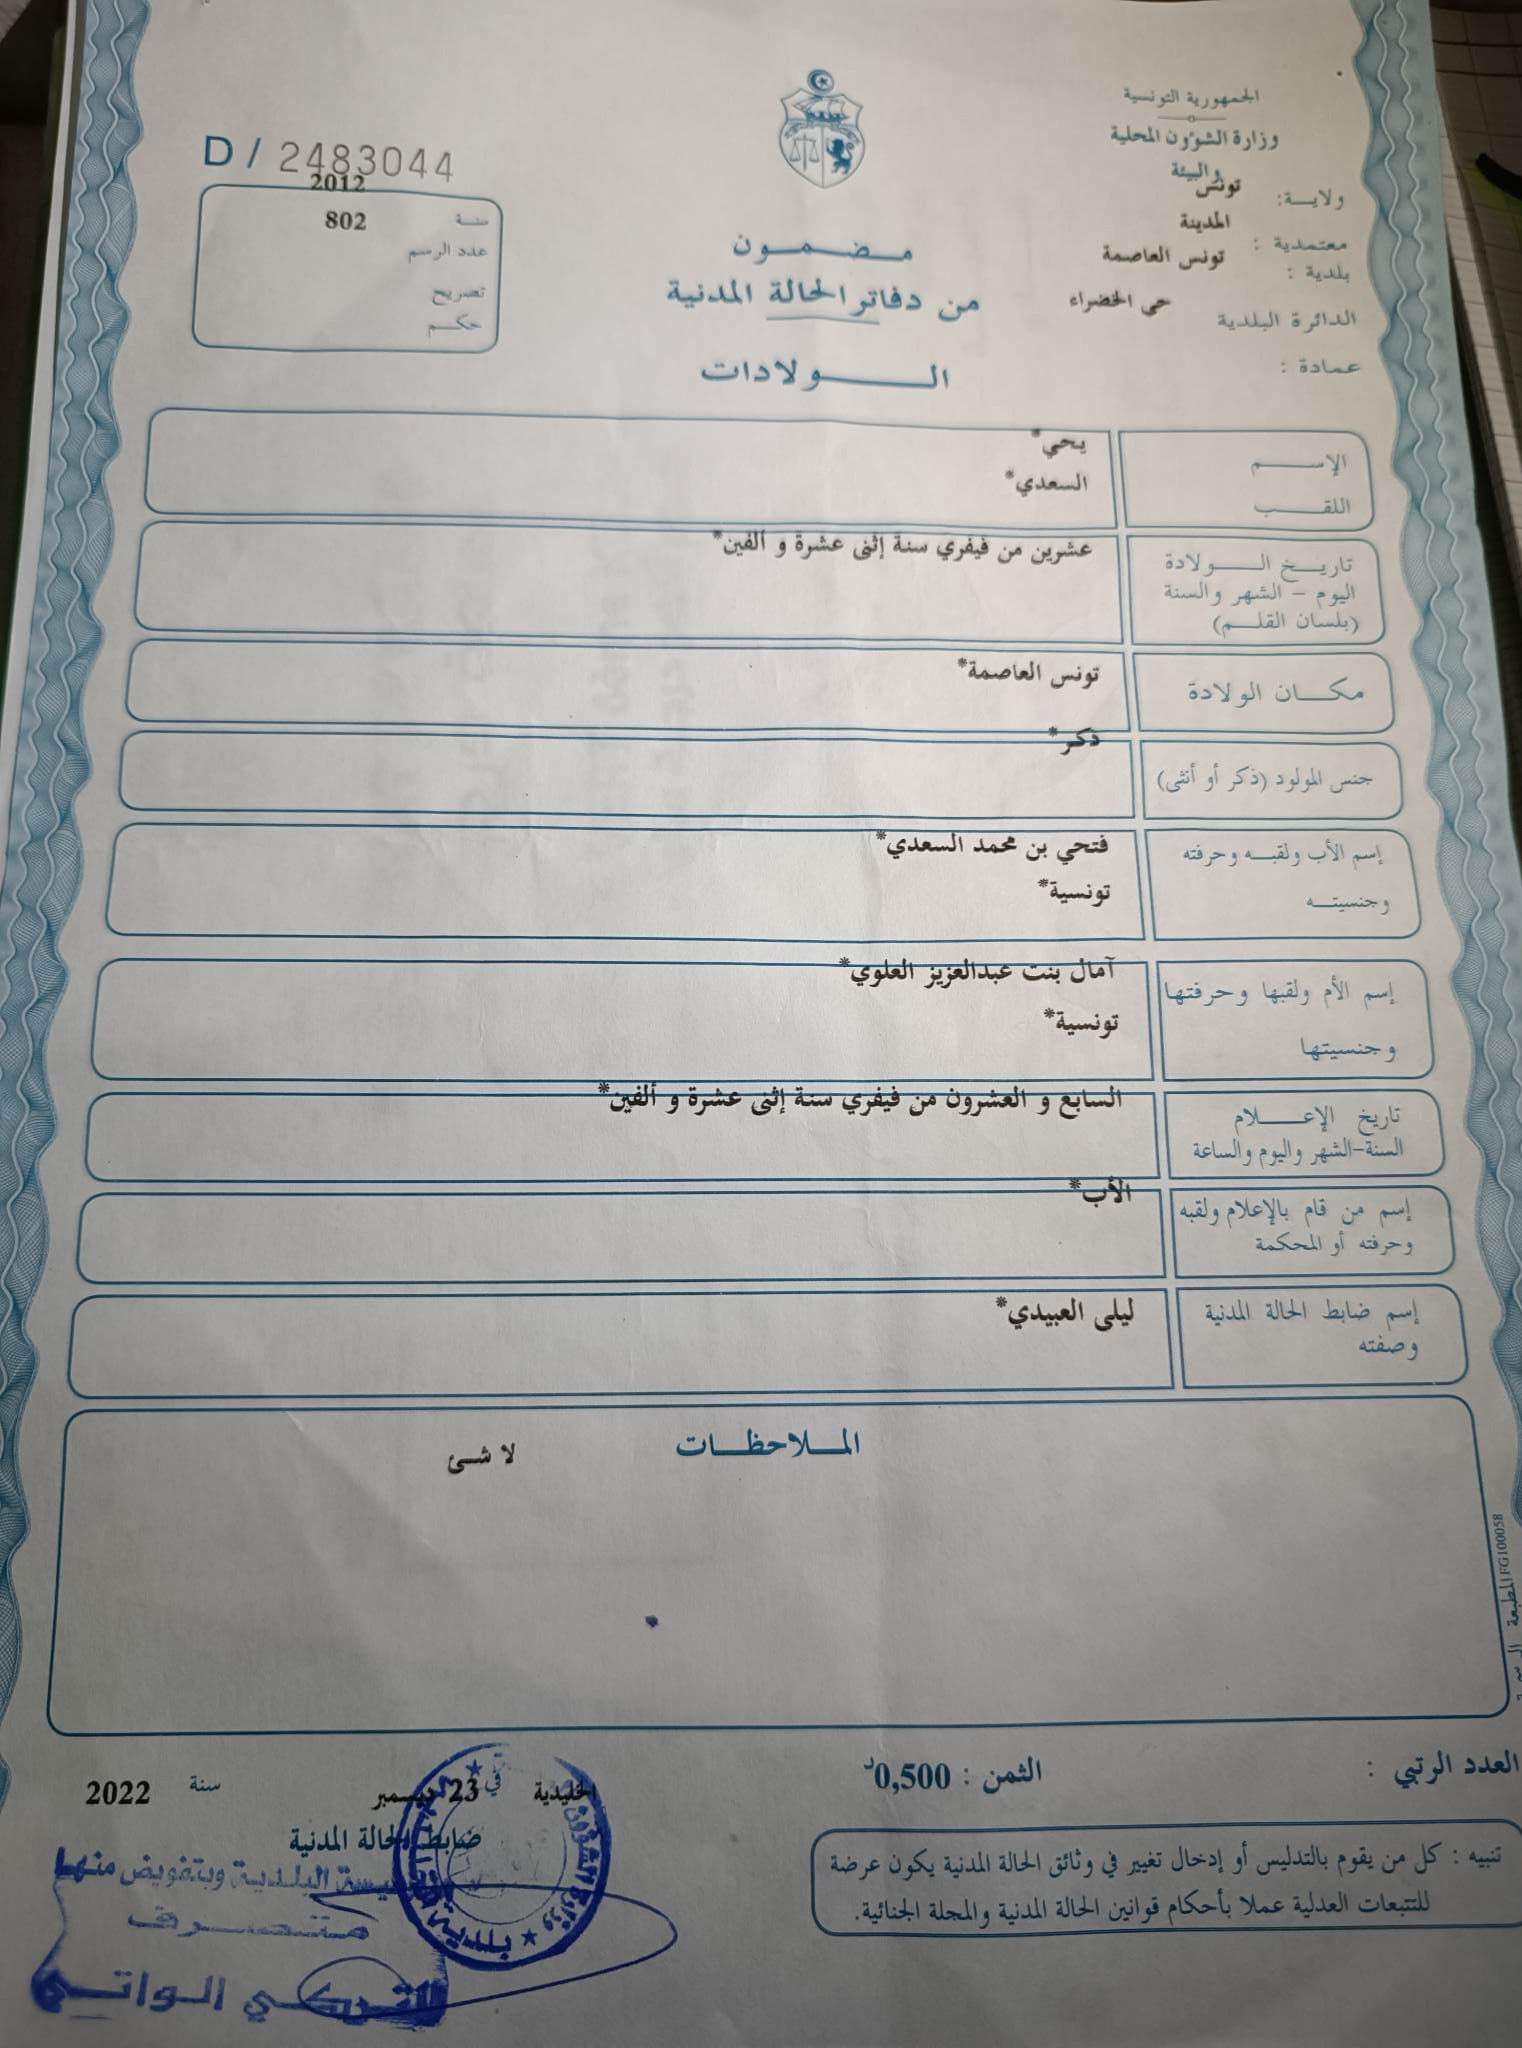 الجمهورية التونسية
وزارة الشؤون المحلية
والبيئة
ولايــة: تونس
معتمدية : المدينة
بلدية : تونس العاصمة
الدائرة البلدية حي الخضراء
عمادة :
D / 2483044
سنة 2012
عدد الرسم 802
تصريح
حكم
مـضـمـون
من دفاتر الحالة المدنية
الـــولادات
الإســـم يحي*
اللقـــب السعدي*
تاريـخ الـــولادة عشرين من فيفري سنة إثنى عشرة و ألفين*
اليوم – الشهر والسنة
(بلسان القلـم)
مكـان الولادة تونس العاصمة*
جنس المولود (ذكر أو أنثى) ذكر*
إسم الأب ولقبـه وحرفته فتحي بن محمد السعدي*
وجنسيتـه تونسية*
إسم الأم ولقبها وحرفتها آمال بنت عبدالعزيز العلوي*
وجنسيتها تونسية*
تاريخ الإعـــلام السابع و العشرون من فيفري سنة إثنى عشرة و ألفين*
السنة-الشهر واليوم والساعة
إسم من قام بالإعلام ولقبه الأب*
وحرفته أو المحكمة
إسم ضابط الحالة المدنية ليلى العبيدي*
وصفته
المـلاحظـات
لا شئ
المطبعة FG100058
العدد الرتبي :
الثمن : 0,500د
الخليدية في 23 ديسمبر سنة 2022
ضابط الحالة المدنية
البلدية وبتفويض منها
متصرف
الواتي
تنبيه : كل من يقوم بالتدليس أو إدخال تغيير في وثائق الحالة المدنية يكون عرضة
للتتبعات العدلية عملا بأحكام قوانين الحالة المدنية والمجلة الجنائية.